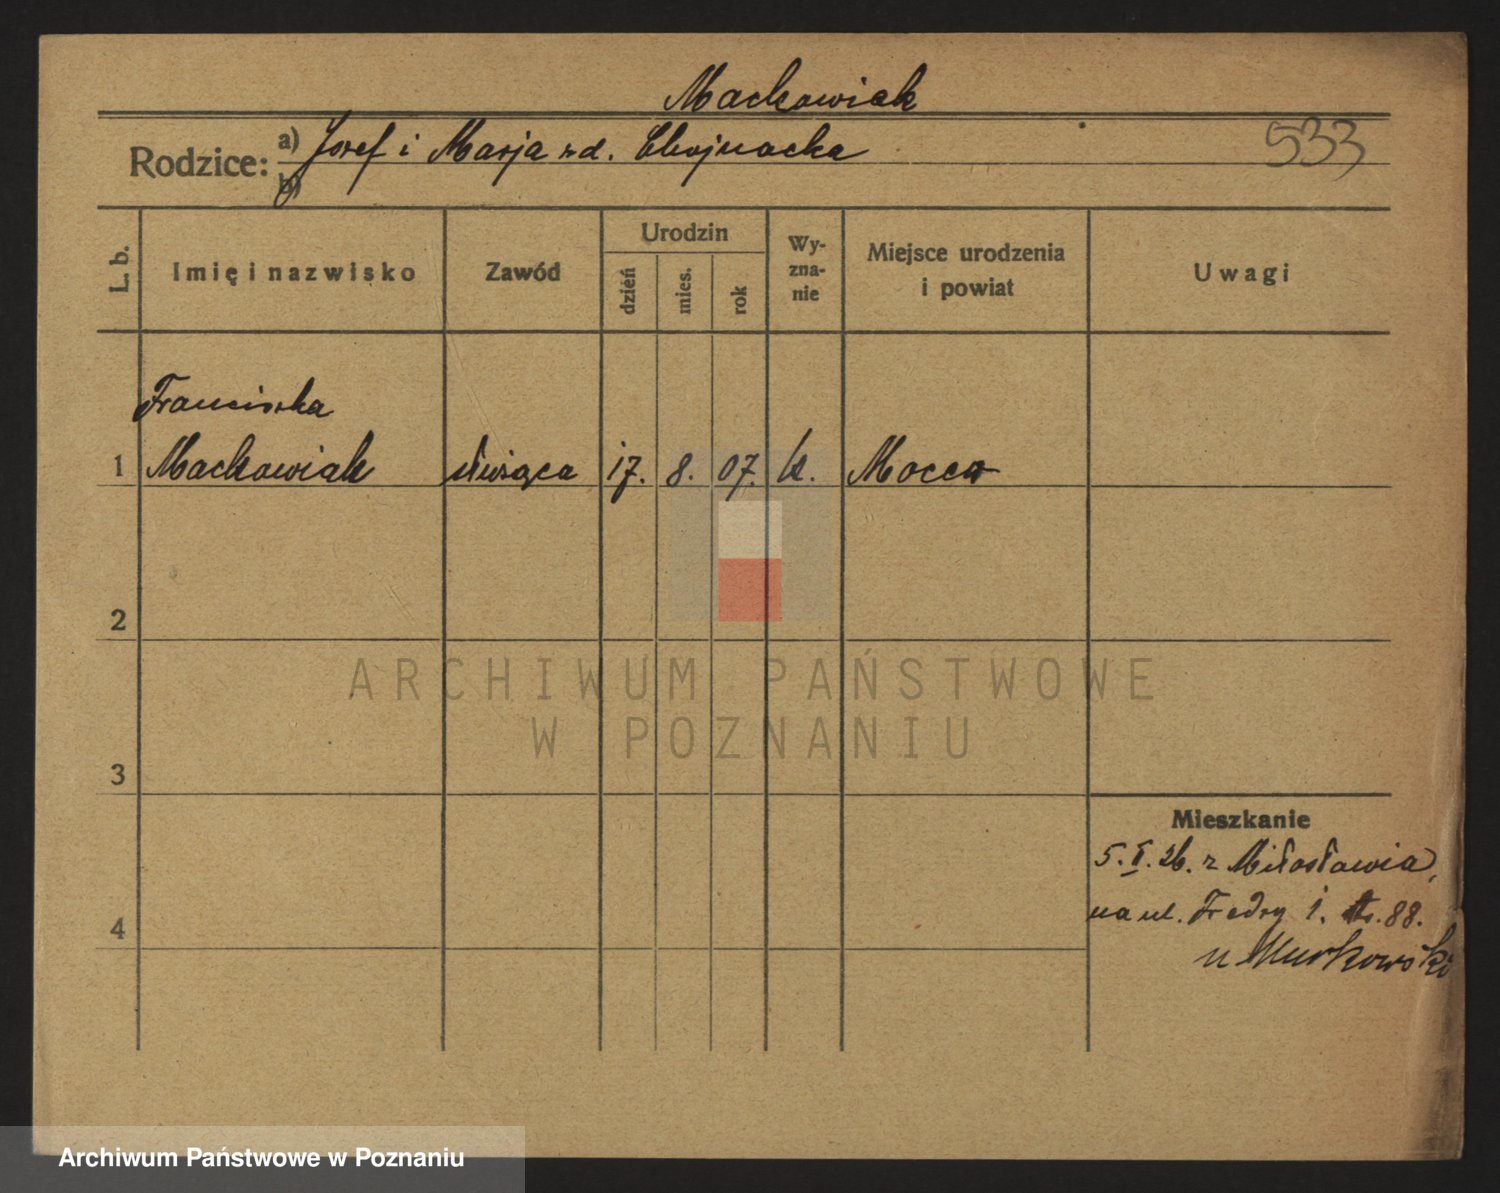 Maćkowiak
Rodzice: a) Josef i Marja zd. Chojnacka
b)
533
L. b. Imię i nazwisko Zawód Urodzin dzień mies. rok Wy-zna-nie Miejsce urodzenia i powiat Uwagi
Franciszka
1 Maćkowiak służąca 17. 8. 07. k.
2
3
4
Mieszkanie
z Miłosławia,
na ul. Fredry 1. 88.
u
ARCHIWUM PAŃSTWOWE
W POZNANIU
Archiwum Państwowe w Poznaniu